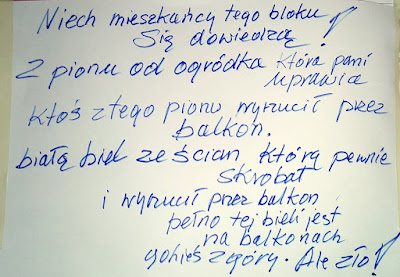 Niech mieszkańcy tego bloku
się dowiedzą!
Z pionu od ogródka która pani
uprawia
ktoś z tego pionu wyrzucił przez
balkon.
białą biel ze ścian którą pewnie
skrobał
i wyrzucił przez balkon
pełno tej bieli jest
na balkonach
gdzieś z góry. Ale zło!